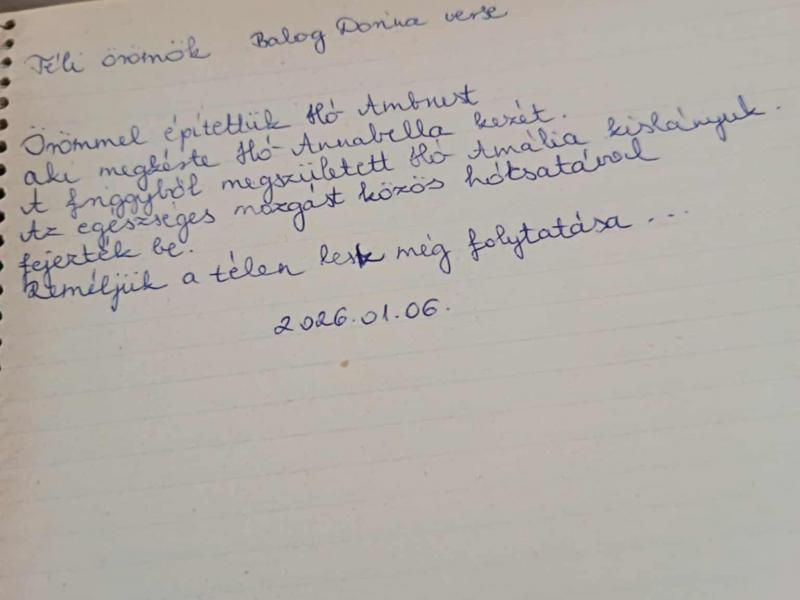 Téli örömök Balog Dorina verse
Örömmel építettük Hó Ambrust
aki megkérte Hó Annabella kezét.
A friggyből megszületett Hó Amália kislányuk.
Az egészséges mozgást közös hócsatával
fejezték be.
Reméljük a télen lesz még folytatása...
2026.01.06.